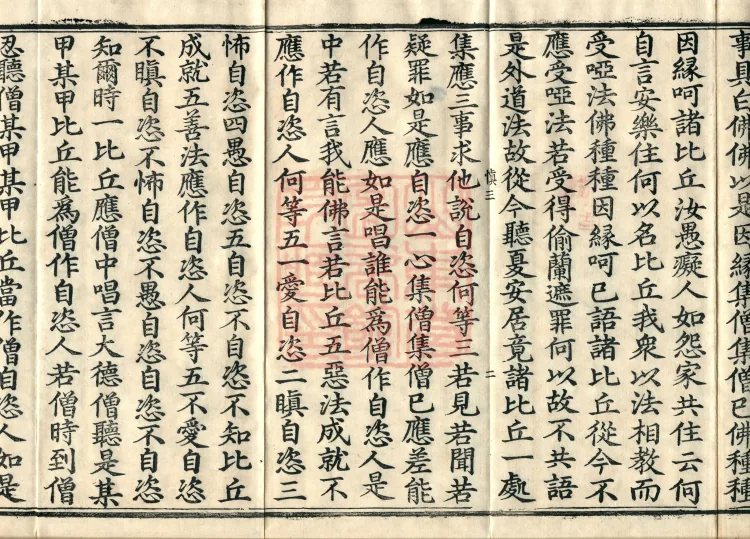 事具白佛佛以是因縁集僧集僧已佛種種
因縁呵諸比丘汝愚癡人如怨家共住云何
自言安樂住何以名比丘我衆以法相教而
受啞法佛種種因縁呵已語諸比丘從今不
應受啞法若受得偷蘭遮罪何以故不共語
是外道法故從今聽夏安居竟諸比丘一處
慎三 二
集應三事求他說自恣何等三若見若聞若
疑罪如是應自恣一心集僧集僧已應差能
作自恣人應如是唱誰能爲僧作自恣人是
中若有言我能佛言若比丘五惡法成就不
應作自恣人何等五一愛自恣二瞋自恣三
怖自恣四愚自恣五自恣不自恣不知比丘
成就五善法應作自恣人何等五不愛自恣
不瞋自恣不怖自恣不愚自恣自恣不自恣
知爾時一比丘應僧中唱言大德僧聽是某
甲某甲比丘能爲僧作自恣人若僧時到僧
忍聽僧某甲某甲比丘當作僧自恣人如是